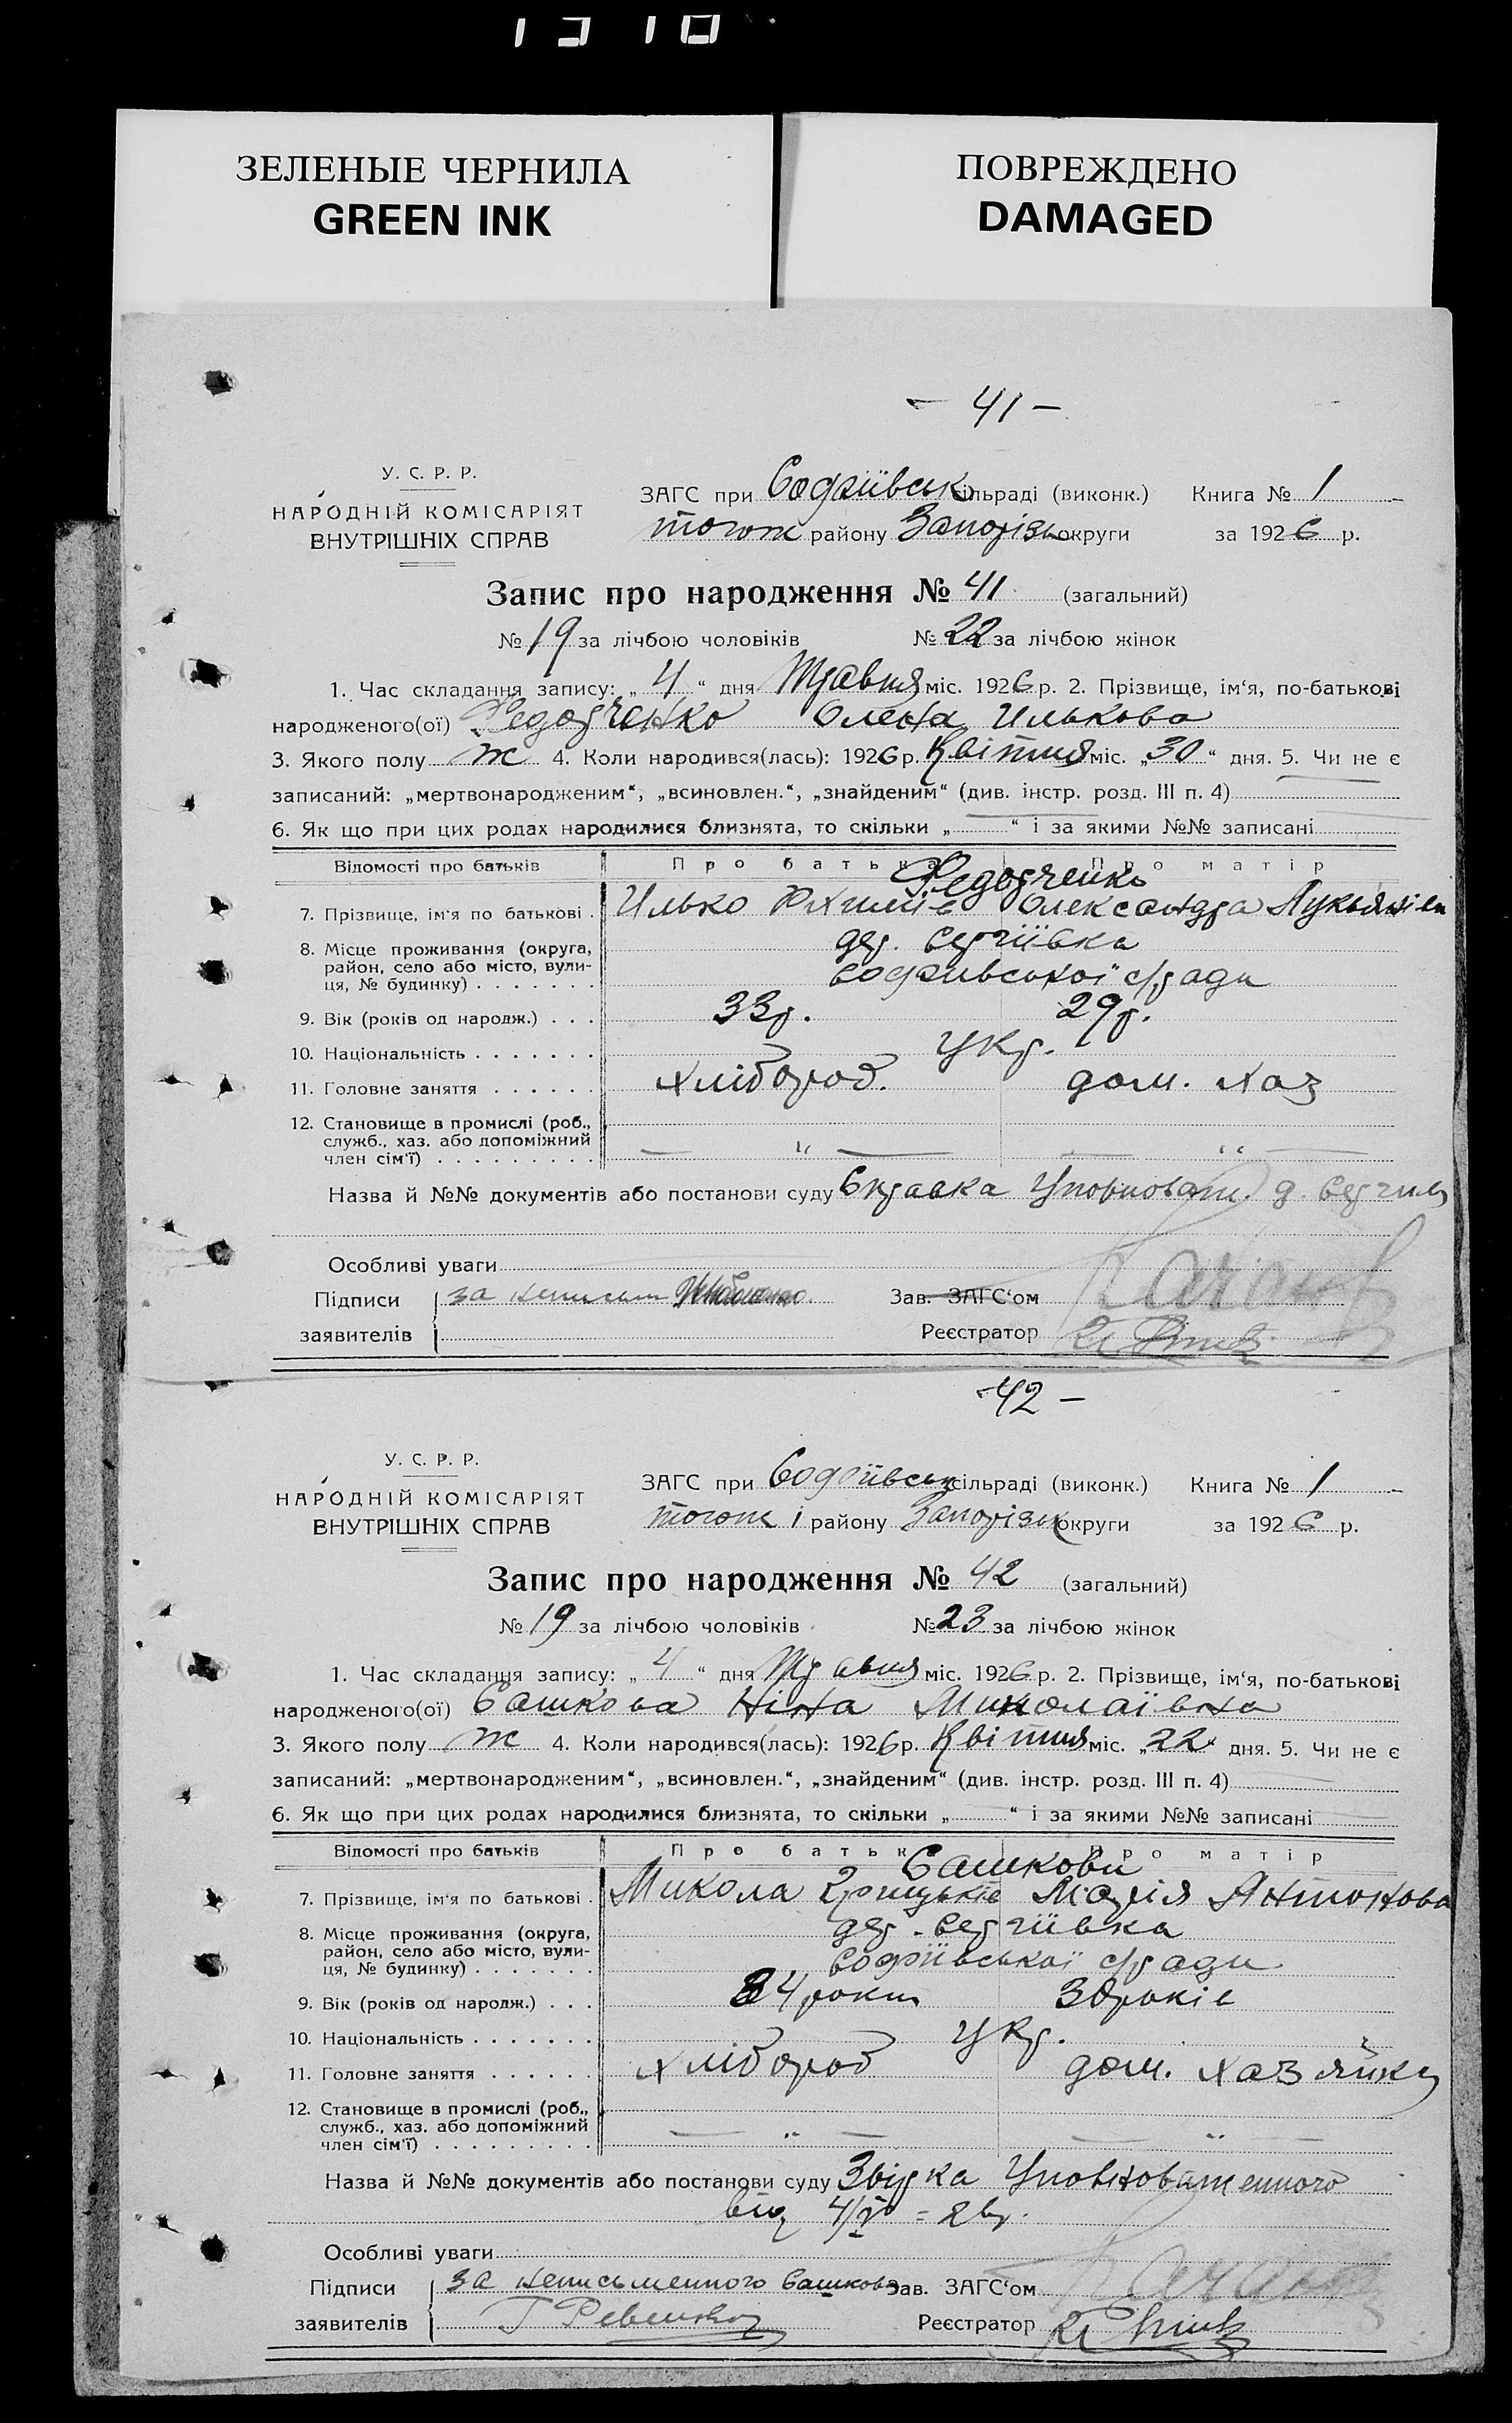 ЗЕЛЕНЫЕ ЧЕРНИЛА
GREEN INK
ПОВРЕЖДЕНО
DAMAGED
- 41 -
У. С. Р. Р.
НАРОДНІЙ КОМІСАРІЯТ
ВНУТРІШНІХ СПРАВ
ЗАГС при Софіївськ сільраді (виконк.) Книга № 1
тогож району Запорізьк округи за 1926 р.
Запис про народження № 41 (загальний)
№ 19 за лічбою чоловіків № 22 за лічбою жінок
1. Час складання запису: „4“ дня Травня міс. 1926 р. 2. Прізвище, ім‘я, по-батькові
народженого(ої) Федорченко Олена Илькова
3. Якого полу ж 4. Коли народився(лась): 1926 р. Квітня міс. „30“ дня. 5. Чи не є
записаний: „мертвонародженим“, „всиновлен.“, „знайденим“ (див. інстр. розд. III п. 4)
6. Як що при цих родах народилися близнята, то скільки „ “ і за якими №№ записані
Відомості про батьків Про батька Про матір
Федорченко
7. Прізвище, ім‘я по батькові . Илько Юхимів Олександра Лукьянів
8. Місце проживання (округа, район, село або місто, вули-ця, № будинку) . . . . . . .
дер. Сергіївка
Софиівської с/ради
9. Вік (років од народж.) . . . 33 р. 29 р.
10. Національність . . . . . . . Укр.
11. Головне заняття . . . . . . хлібороб. дом. хаз
12. Становище в промислі (роб.,
служб., хаз. або допоміжний
член сім‘ї) . . . . . . . . . — " — — " —
Назва й №№ документів або постанови суду Справка Уповноваж. д. Сергиів
Особливі уваги
Підписи за неписьмен Зав. ЗАГС‘ом
заявителів Реєстратор
- 42 -
У. С. Р. Р.
НАРОДНІЙ КОМІСАРІЯТ
ВНУТРІШНІХ СПРАВ
ЗАГС при Софіївськ сільраді (виконк.) Книга № 1
тогож району Запорізьк округи за 1926 р.
Запис про народження № 42 (загальний)
№ 19 за лічбою чоловіків № 23 за лічбою жінок
1. Час складання запису: „4“ дня Травня міс. 1926 р. 2. Прізвище, ім‘я, по-батькові
народженого(ої) Сашкова Ніна Миколаївна
3. Якого полу ж 4. Коли народився(лась): 1926 р. Квітня міс. „22“ дня. 5. Чи не є
записаний: „мертвонародженим“, „всиновлен.“, „знайденим“ (див. інстр. розд. III п. 4)
6. Як що при цих родах народилися близнята, то скільки „ “ і за якими №№ записані
Відомості про батьків Про батька Про матір
Сашкови
7. Прізвище, ім‘я по батькові . Микола Грицьків Марія Антонова
8. Місце проживання (округа, район, село або місто, вули-ця, № будинку) . . . . . . .
дер. Сергіївка
Софиївської с/ради
9. Вік (років од народж.) . . . 34 роки 30 років
10. Національність . . . . . . . Укр.
11. Головне заняття . . . . . . хлібороб дом. хазяйка
12. Становище в промислі (роб.,
служб., хаз. або допоміжний
член сім‘ї) . . . . . . . . . — " — — " —
Назва й №№ документів або постанови суду Звірка Уповноваженного
від 4/V - 26 р.
Особливі уваги
Підписи за неписьменного Сашкова Зав. ЗАГС‘ом
заявителів Реєстратор